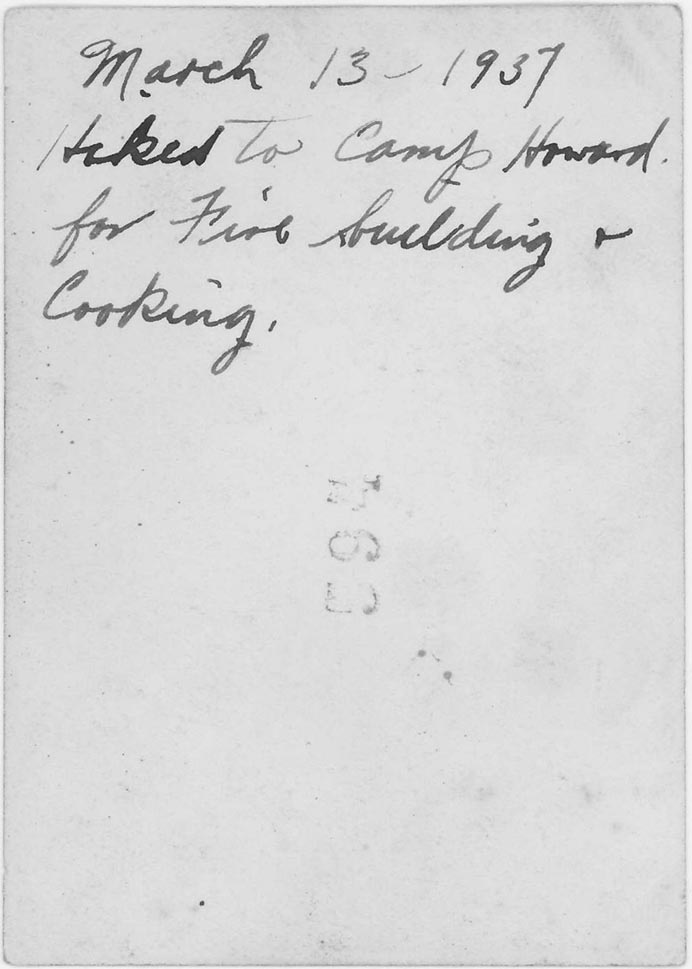 March 13 - 1937
Hiked to Camp Howard.
for Fire building &
Cooking.